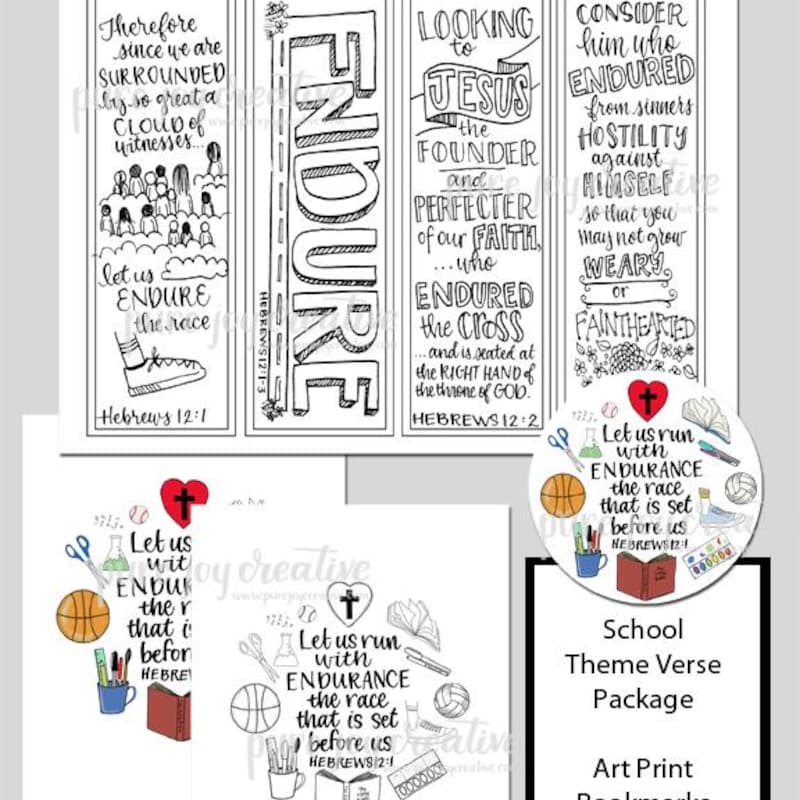 Therefore
since we are
SURROUNDED
by so great a
CLOUD of
witnesses...
let us
ENDURE
the race
Hebrews 12:1
ENDURE
HEBREWS 12:1-3
LOOKING
to
JESUS
the
FOUNDER
and
PERFECTER
of our FAITH,
...who
ENDURED
the CROSS
...and is seated at
the RIGHT HAND of
the throne of GOD.
HEBREWS 12:2
CONSIDER
him who
ENDURED
from sinners
HOSTILITY
against
HIMSELF
so that you
may not grow
WEARY
or
FAINTHEARTED
pure joy creative
pure joy creative
pure joy creative
Let us run
with
ENDURANCE
the race
that is set
before us
HEBREWS 12:1
Let us
with
ENDU
the r
that i
before
HEBRE
pure joy creative
Let us run
with
ENDURANCE
the race
that is set
before us
HEBREWS 12:1
pure joy creative
School
Theme Verse
Package
Art Print
Bookmarks